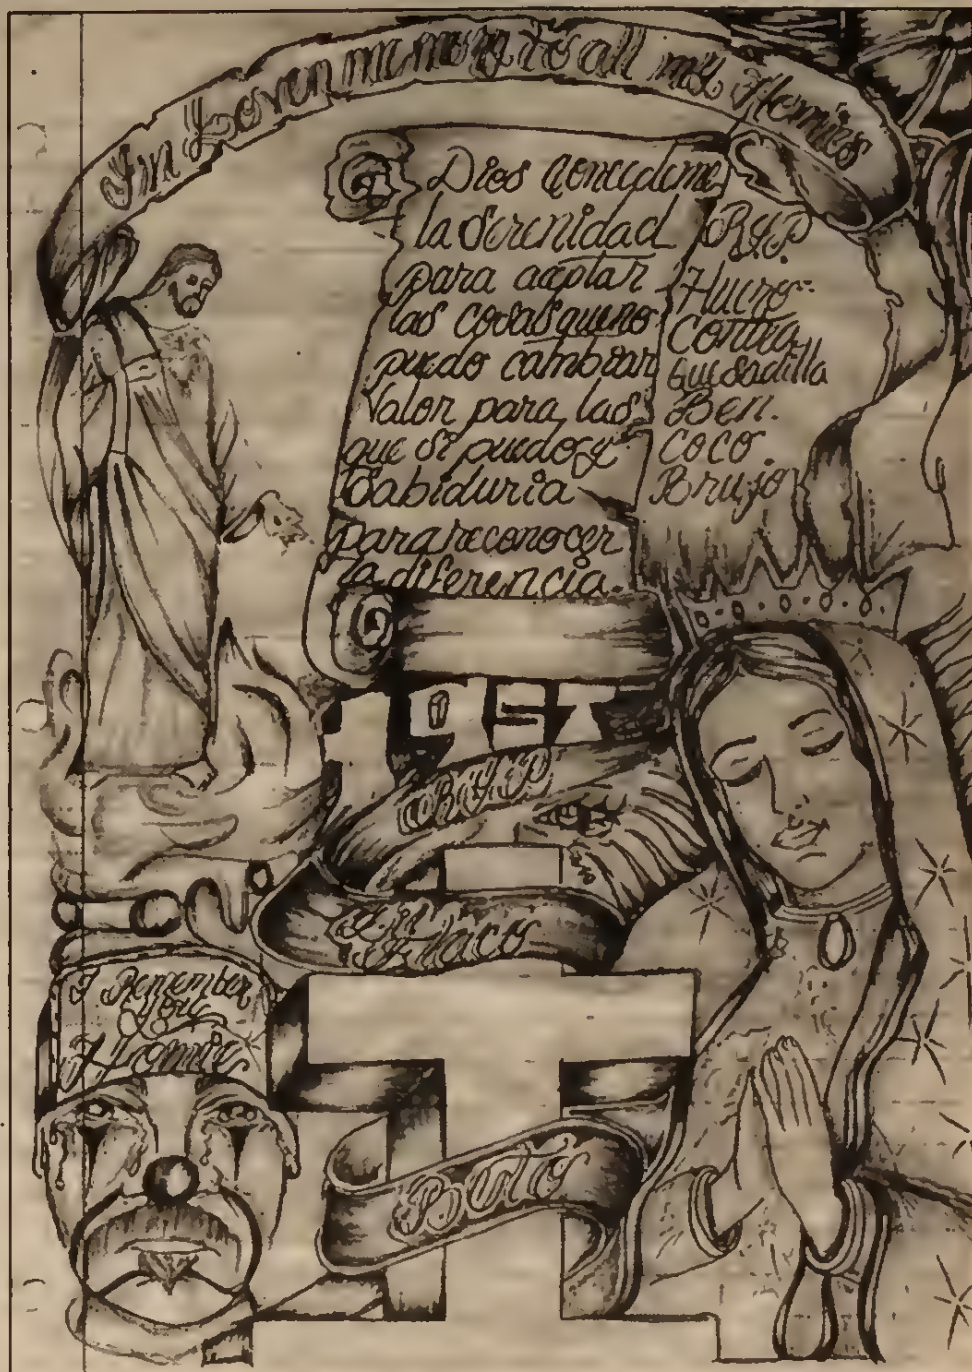 In Loven memory to all my Homies
Dios concedeme
la Serenidad
para aceptar
las cosas que no
puedo cambiar
Valor para las
que si puedo y
Sabiduria
para reconocer
la diferencia.
R.I.P.
Huero
Contra
Quesadilla
Ben.
Coco.
Brujo
R.I.P
Lil Flaco
I Remember
You
Homie
Beto